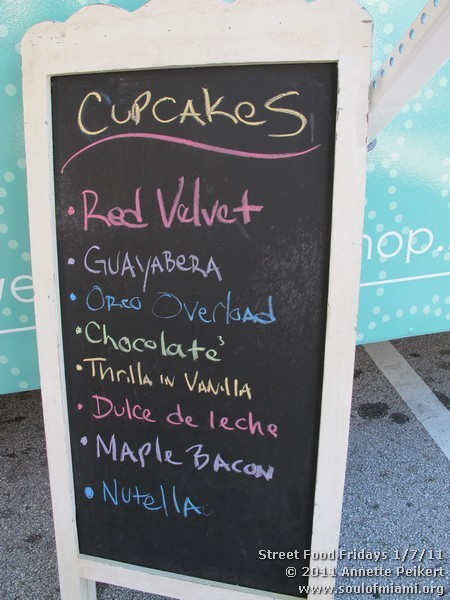 CUPCAKES
• Red Velvet
• GUAYABERA
• Oreo Overload
• Chocolate³
• Thrilla in Vanilla
• Dulce de leche
• Maple Bacon
• Nutella
hop.
Street Food Fridays 1/7/11
© 2011 Annette Peikert
www.soulofmiami.org